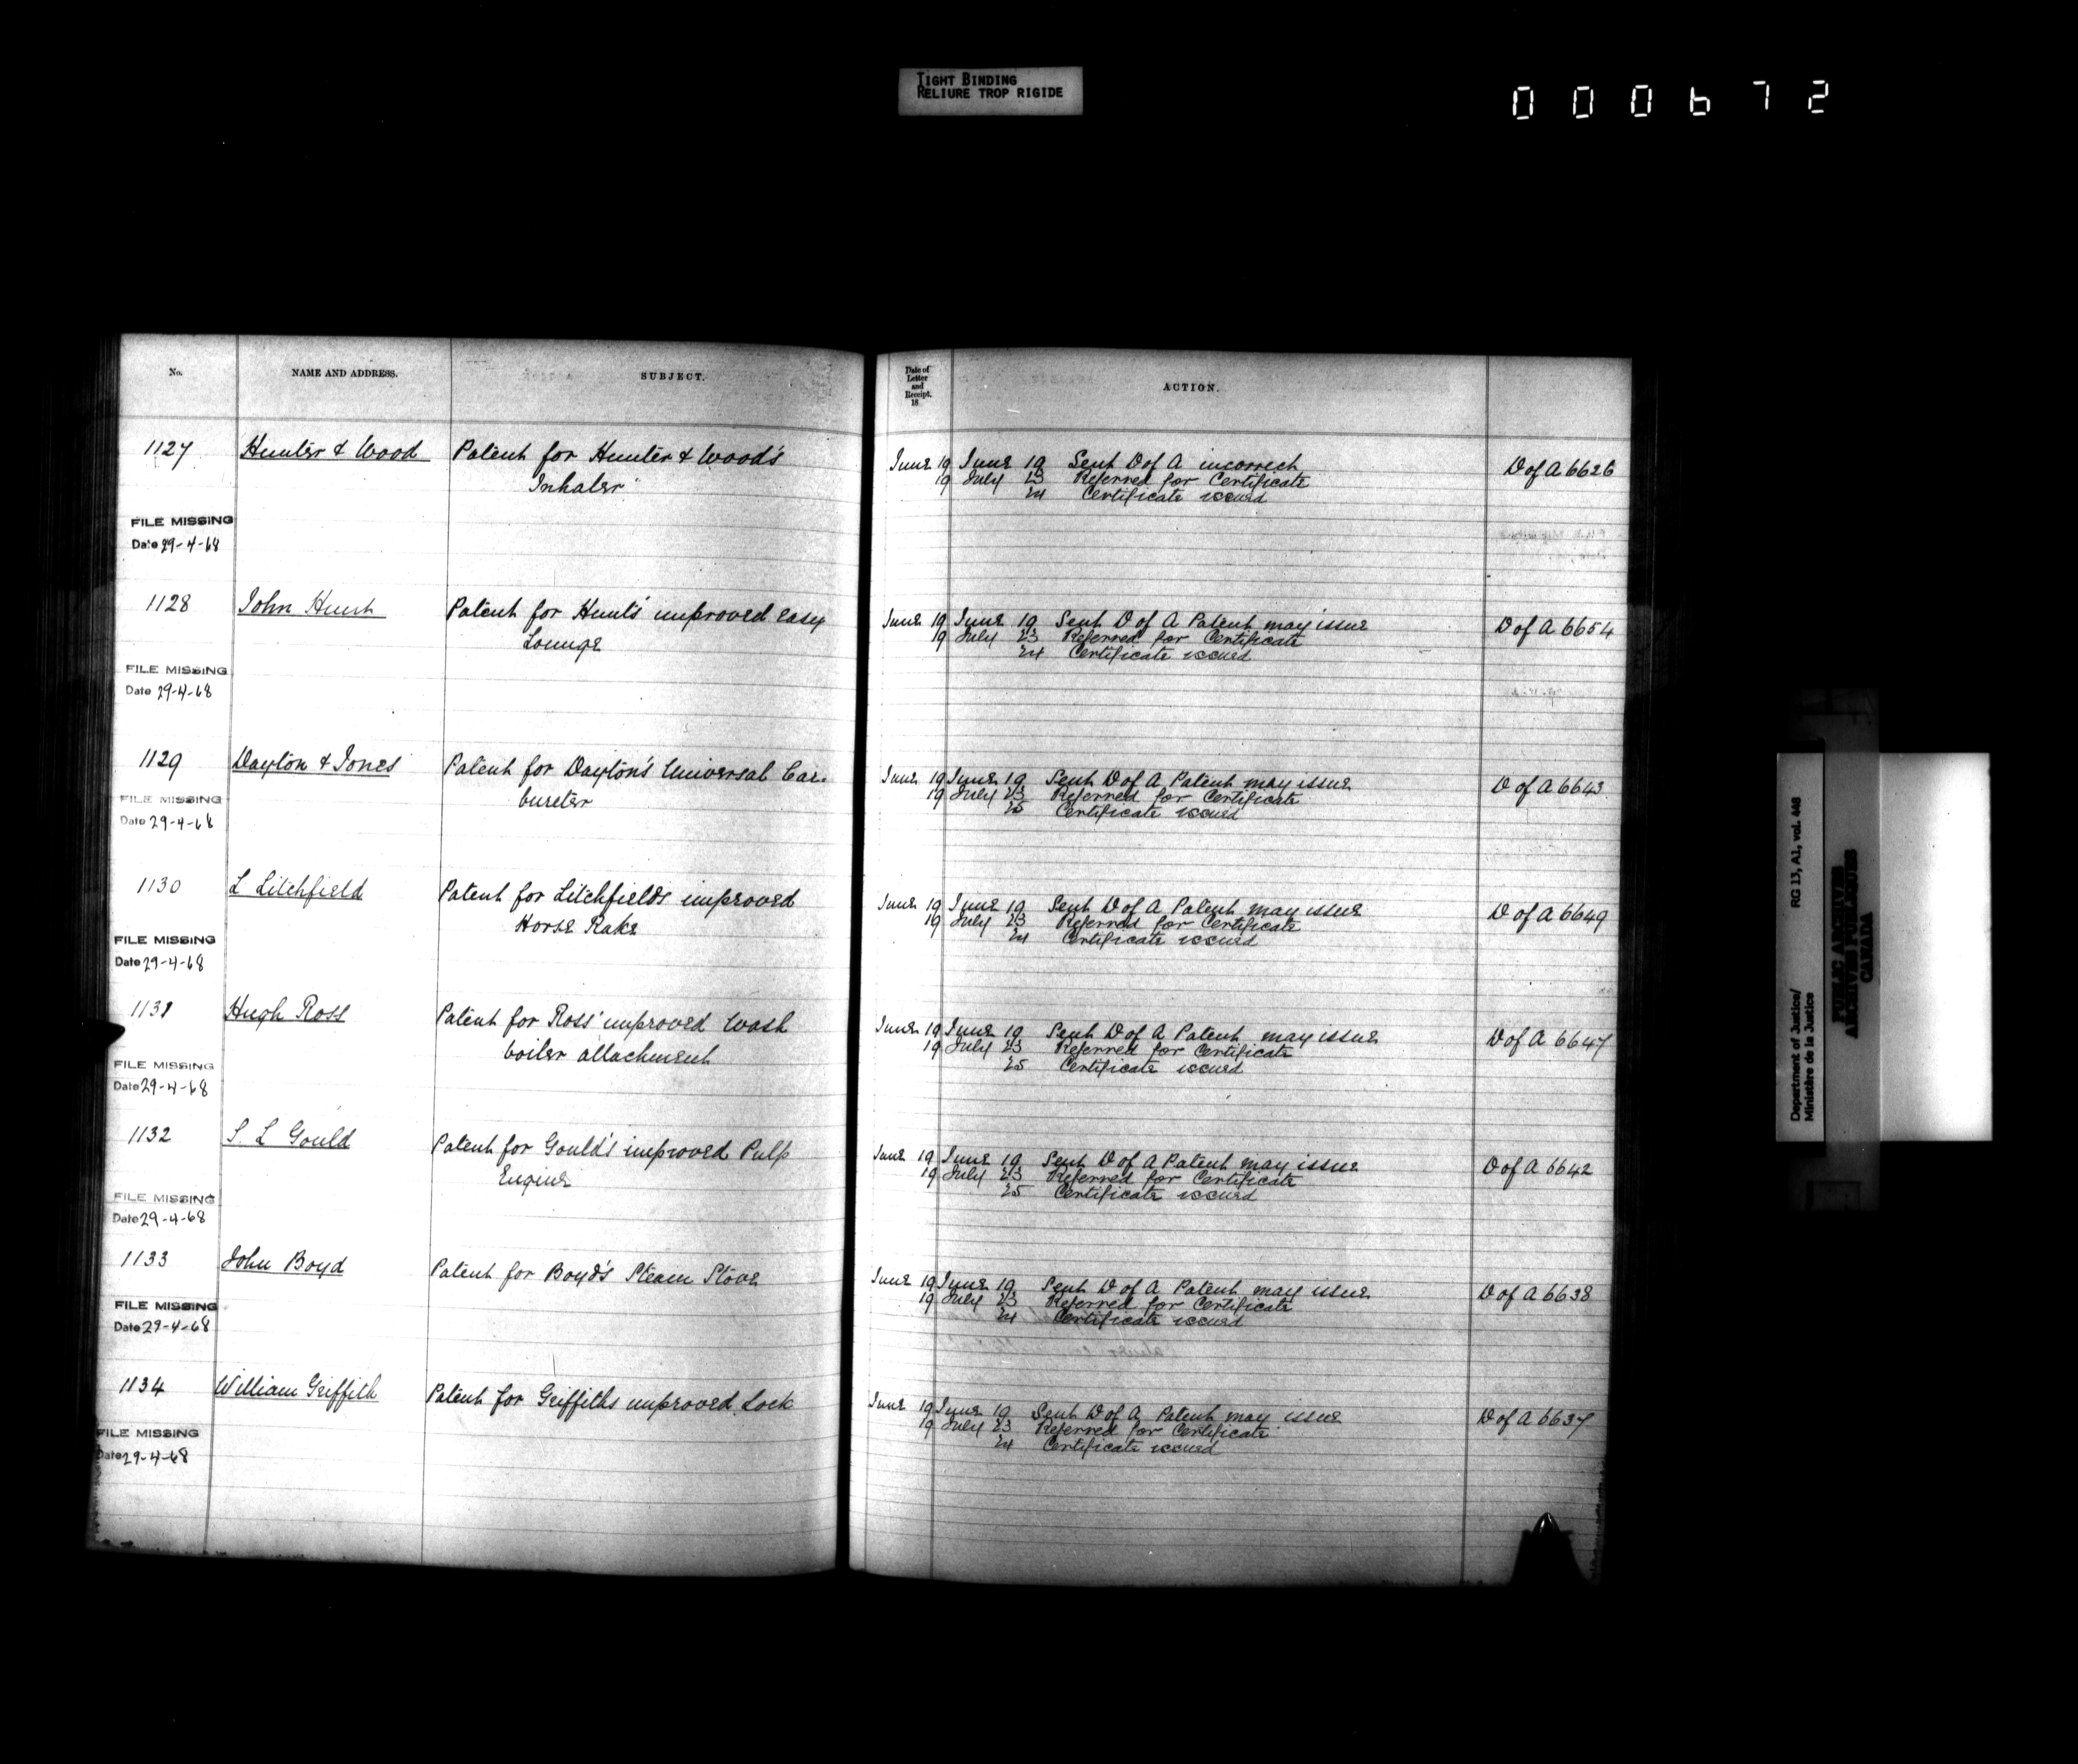 TIGHT BINDING
RELIURE TROP RIGIDE
000672
No. NAME AND ADDRESS. SUBJECT.
Date of
Letter
and
Receipt.
18
ACTION.
1127 Hunter & Wood Patent for Hunter & Wood's
Inhaler
FILE MISSING
Date 29-4-68
June 19 June 19 Sent D of A incorrect D of A 6626
19 July 23 Referred for Certificate
24 Certificate issued
1128 John Hunt Patent for Hunt's improved easy
Lounge
FILE MISSING
Date 29-4-68
June 19 June 19 Sent D of A Patent may issue D of A 6654
19 July 23 Referred for Certificate
24 Certificate issued
1129 Dayton & Jones Patent for Dayton's Universal Car-
bureter
FILE MISSING
Date 29-4-68
June 19 June 19 Sent D of A Patent may issue D of A 6643
19 July 23 Referred for Certificate
25 Certificate issued
1130 L Litchfield Patent for Litchfield's improved
Horse Rake
FILE MISSING
Date 29-4-68
June 19 June 19 Sent D of A Patent may issue D of A 6649
19 July 23 Referred for Certificate
24 Certificate issued
1131 Hugh Ross Patent for Ross' improved Wash
boiler attachment
FILE MISSING
Date 29-4-68
June 19 June 19 Sent D of A Patent may issue D of A 6647
19 July 23 Referred for Certificate
25 Certificate issued
1132 S. L Gould Patent for Gould's improved Pulp
Engine
FILE MISSING
Date 29-4-68
June 19 June 19 Sent D of A Patent may issue D of A 6642
19 July 23 Referred for Certificate
25 Certificate issued
1133 John Boyd Patent for Boyd's Steam Stove
FILE MISSING
Date 29-4-68
June 19 June 19 Sent D of A Patent may issue D of A 6638
19 July 23 Referred for Certificate
24 Certificate issued
1134 William Griffith Patent for Griffiths improved Lock
FILE MISSING
Date 29-4-68
June 19 June 19 Sent D of A Patent may issue D of A 6637
19 July 23 Referred for Certificate
24 Certificate issued
Department of Justice/ RG 13, A1, vol. 448
Ministère de la Justice
PUBLIC ARCHIVES
ARCHIVES PUBLIQUES
CANADA